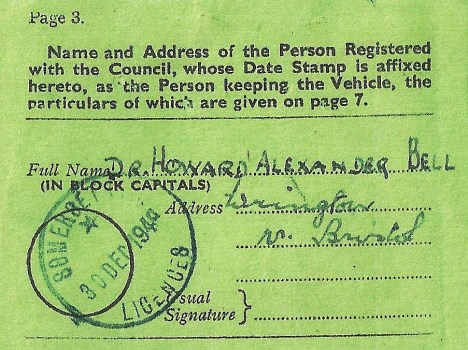 Page 3.
Name and Address of the Person Registered
with the Council, whose Date Stamp is affixed
hereto, as the Person keeping the Vehicle, the
particulars of which are given on page 7.
Full Name DR. HOWARD ALEXANDER BELL
(IN BLOCK CAPITALS)
Address Wrington
nr. Bristol
SOMERSET
30 DEC
LICENCES
Usual
Signature }